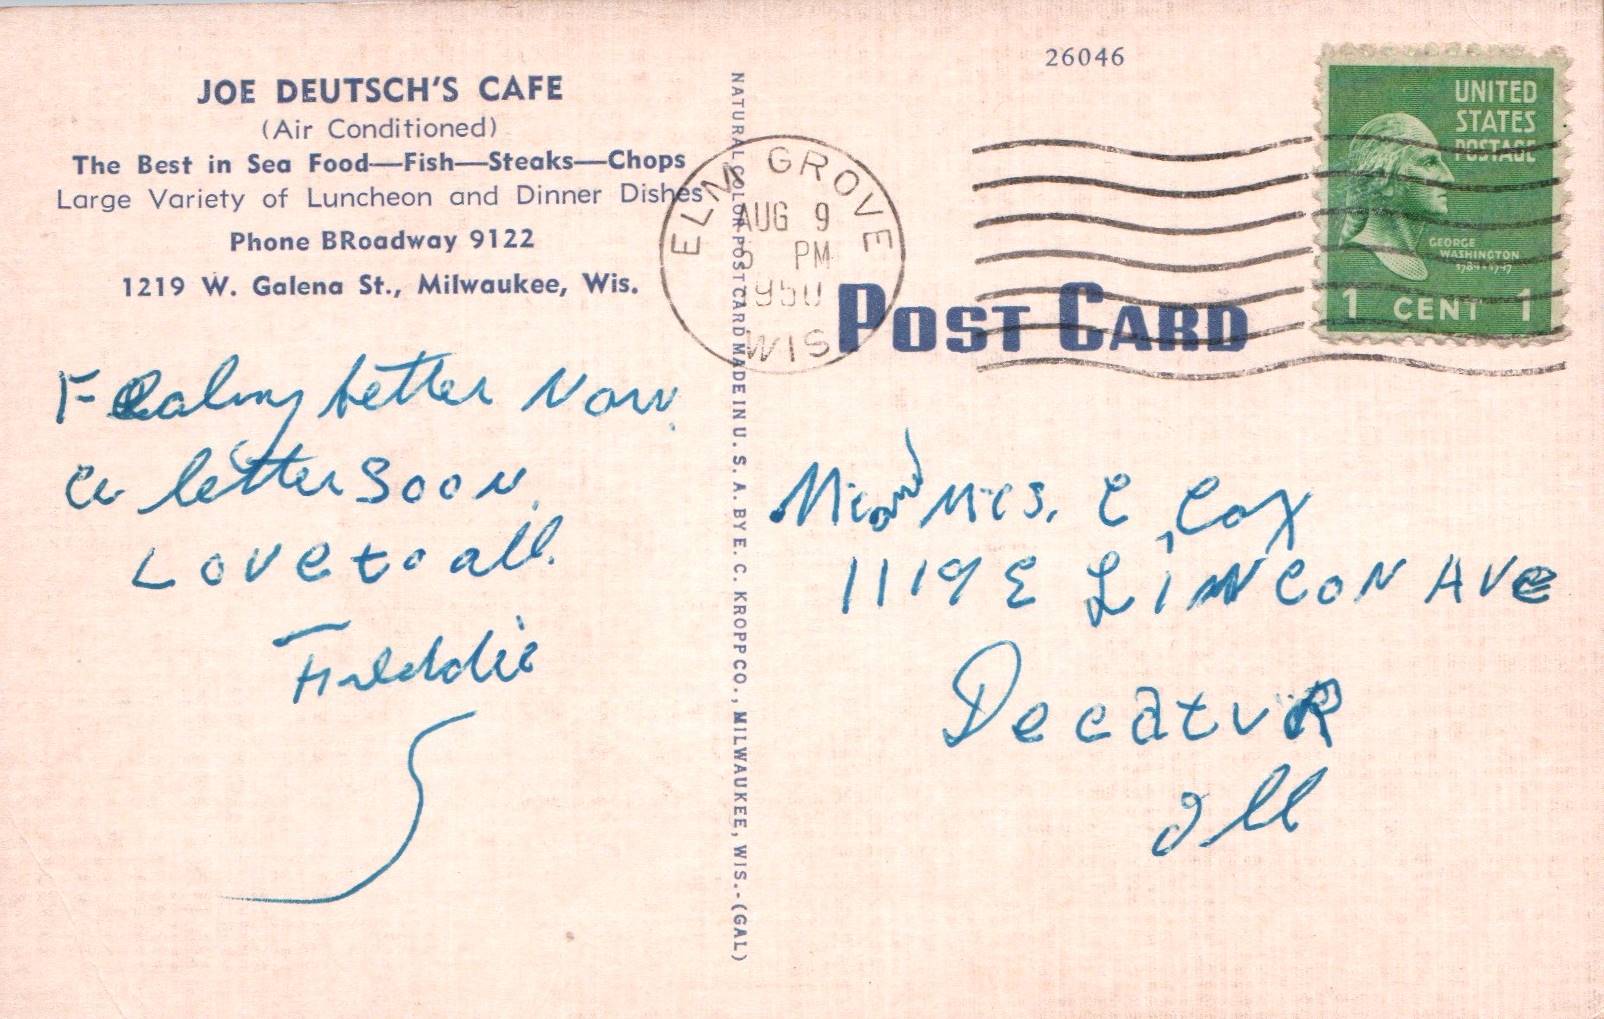 JOE DEUTSCH'S CAFE
(Air Conditioned)
The Best in Sea Food—Fish—Steaks—Chops
Large Variety of Luncheon and Dinner Dishes
Phone BRoadway 9122
1219 W. Galena St., Milwaukee, Wis.
Fealing better Now.
a letter soon.
Love to all.
Freddie
NATURAL COLOR POST CARD MADE IN U. S. A. BY E. C. KROPP CO., MILWAUKEE, WIS.-(GAL)
26046
ELM GROVE
AUG 9
PM
1950
WIS
UNITED
STATES
POSTAGE
GEORGE
WASHINGTON
1789-1797
1 CENT 1
POST CARD
Mr and Mrs. C, Cox
1119 E LINCON AVE
Decatur
Ill